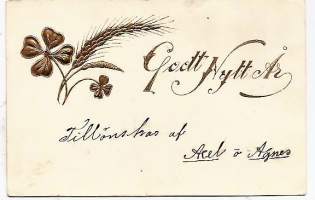 Godt Nytt År
Tillönskas af
Axel o Agnes